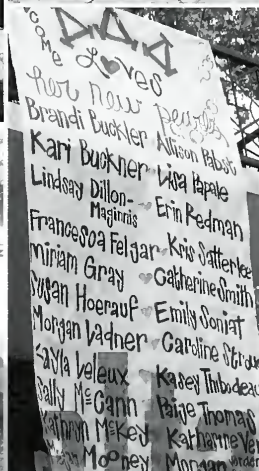 ΔΔΔ
COME Loves
her new
Brandi Buckler Allison Pabst
Kari Buckner Lisa Papale
Lindsay Dillon-Maginnis Erin Redman
Francesca Felgar Kris Satterlee
Miriam Gray Catherine Smith
Susan Hoerauf Emily Soniat
Morgan Ladner Caroline
Kayla Leleux Kasey Thibodeau
Sally McCann Paige Thomas
Kathryn McKey Katharine
Mooney Morgan